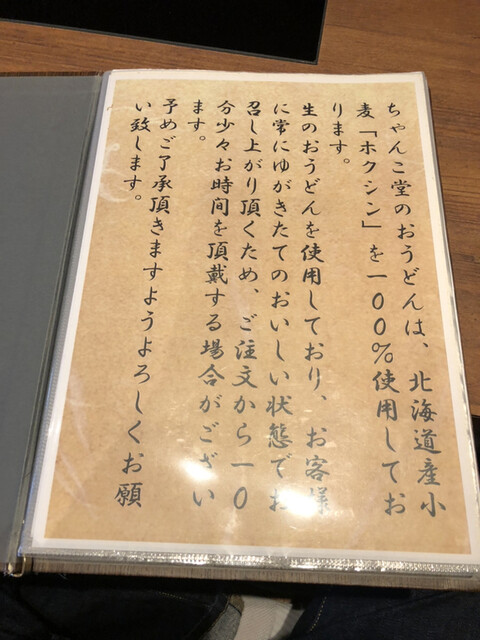 ちゃんこ堂のおうどんは、北海道産小
麦「ホクシン」を一００％使用してお
ります。
生のおうどんを使用しており、お客様
に常にゆがきたてのおいしい状態でお
召し上がり頂くため、ご注文から一０
分少々お時間を頂戴する場合がござい
ます。
予めご了承頂きますようよろしくお願
い致します。